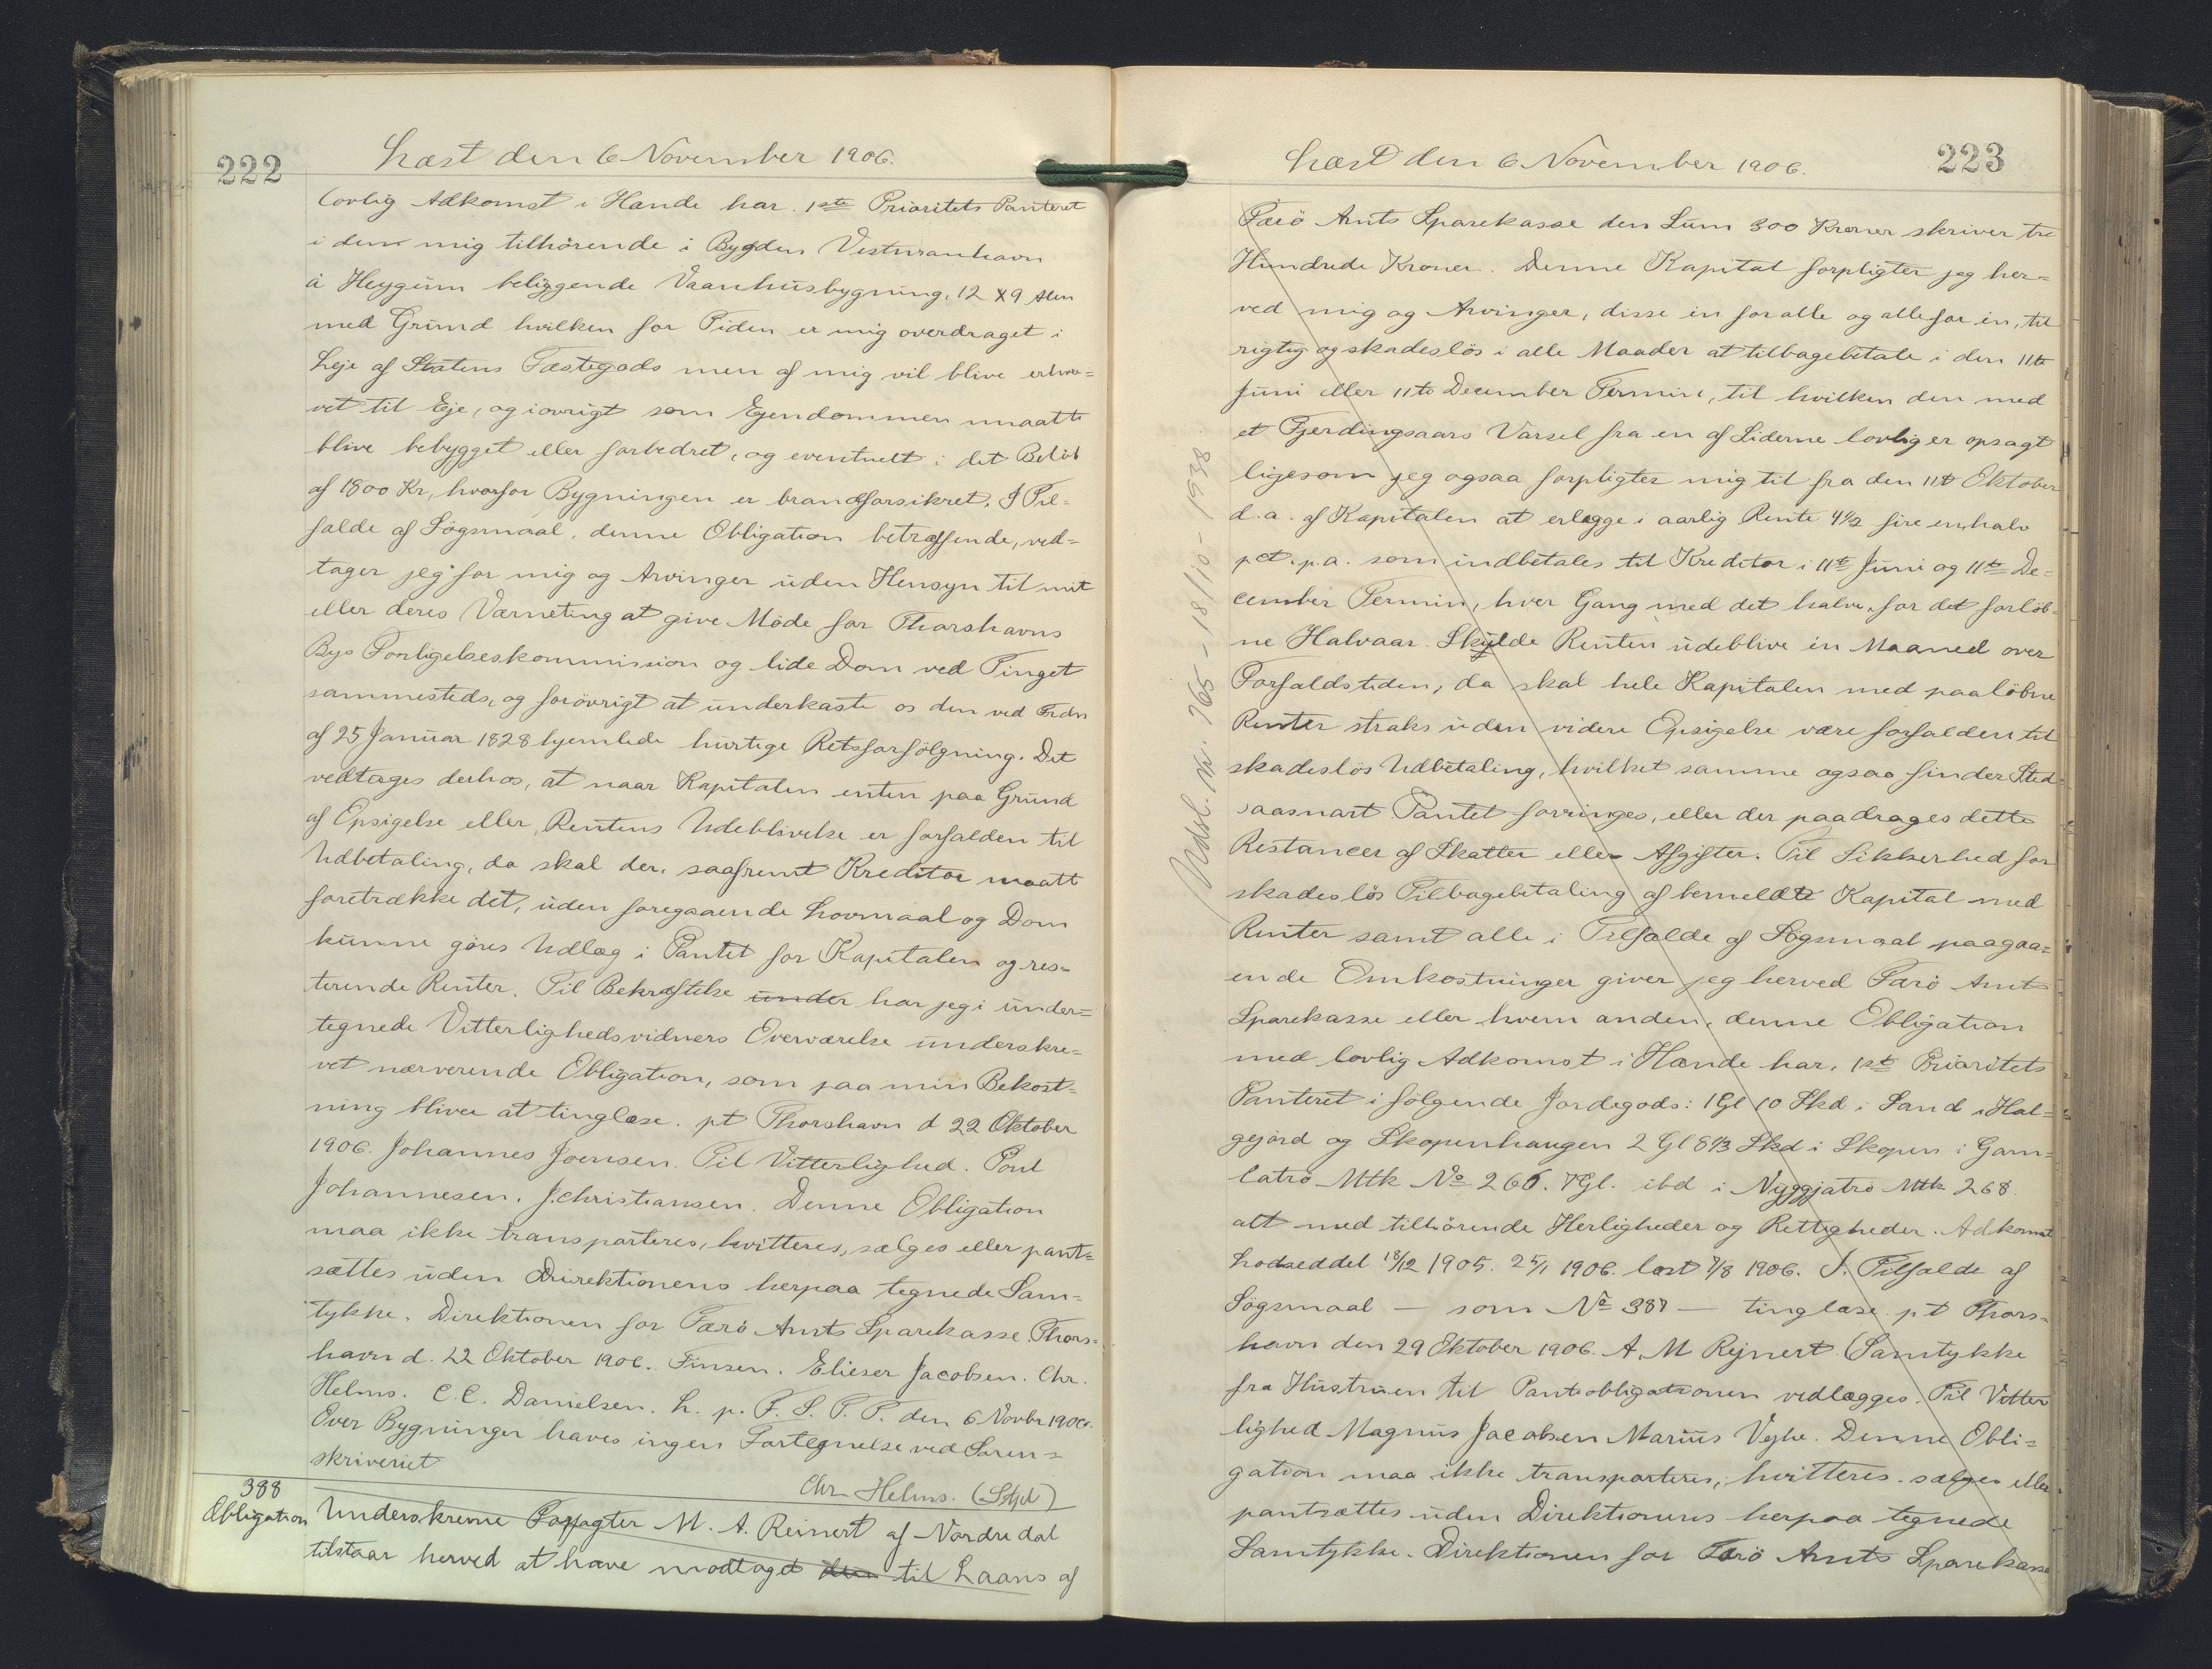 222
Læst den 6 November 1906.
lovlig Adkomst i Hænde har. 1ste Prioritets Panteret
i den mig tilhörende i Bygden Vestmanhavn
á Heygum beliggende Vaanhusbygning, 12 x 9 Alen
med Grund hvilken for Tiden er mig overdraget i
Leje af Statens Fæstegods men af mig vil blive erhver=
vet til Eje, og iövrigt som Ejendommen maatte
blive bebygget eller forbedret, og eventuelt i det Belöb
af 1800 Kr, hvorfor Bygningen er brandforsikret. I Til=
fælde af Sögsmaal, denne Obligation betræffende, ved=
tager jeg for mig og Arvinger uden Hensyn til mit
eller deres Værneting at give Möde for Thorshavns
Bys Forligelseskommission og lide Dom ved Tinget
sammesteds, og forövrigt at underkaste os den ved Frdn
af 25 Januar 1828 hjemlede hurtige Retsforfölgning. Det
vedtages derhos, at naar Kapitalen enten paa Grund
af Opsigelse eller Rentens Udeblivelse er forfalden til
Udbetaling, da skal der, saafremt Kreditor maatte
foretrække det, uden foregaaende Lovmaal og Dom
kunne göres Udlæg i Pantet for Kapitalen og res=
terende Renter. Til Bekræftelse under har jeg i under=
tegnede Vitterlighedsvidners Overværelse underskre=
vet nærværende Obligation, som paa min Bekost=
ning bliver at tinglæse. pt Thorshavn d 22 Oktober
1906. Johannes Joensen. Til Vitterlighed. Poul
Johannesen. J. Christiansen. Denne Obligation
maa ikke transporteres, kvitteres, sælges eller pant=
sættes uden Direktionens herpaa tegnede Sam=
tykke. Direktionen for Færö Amts Sparekasse Thors=
havn d. 22 Oktober 1906. Finsen. Elieser Jacobsen. Chr.
Helms. C. C. Danielsen. L. p. F. S. T. P. den 6 Novbr 1906.
Over Bygninger haves ingen Fortegnelse ved Soren=
skriveriet
Chr Helms. (Stpd)
388
Obligation
Underskrevne Paffagter M. A. Reinert af Nordredal
tilstaar herved at have modtaget den til Laans af
223
Læst den 6 November 1906.
Færö Amts Sparekasse den Sum 300 Kroner skriver tre
Hundrede Kroner. Denne Kapital forpligter jeg her=
ved mig og Arvinger, disse in for alle og alle for én, til
rigtig og skadeslös i alle Maader at tilbagebetale i den 11te
Juni eller 11te December Termin, til hvilken den med
et Fjerdingsaars Varsel fra en af Siderne lovlig er opsagt
ligesom jeg ogsaa forpligter mig til fra den 11te Oktober
d. a. af Kapitalen at erlægge i aarlig Rente 4 1/2 fire en halv
pct. p. a. som indbetales til Kreditor i 11te Juni og 11te De=
cember Termin, hver Gang med det halve for det forlöb=
ne Halvaar. Skulde Renten udeblive én Maaned over
Forfaldstiden, da skal hele Kapitalen med paalöbne
Renter straks uden videre Opsigelse være forfalden til
skadeslös Udbetaling, hvilket samme ogsaa finder Sted
saasnart Pantet forringes, eller der paadrages dette
Restancer af Skatter eller Afgifter. Til Sikkerhed for
skadeslös Tilbagebetaling af bemeldte Kapital med
Renter samt alle i Tilfælde af Sögsmaal paagaa=
ende Omkostninger giver jeg herved Færö Amts
Sparekasse eller hvem anden, denne Obligation
med lovlig Adkomst i Hænde har, 1ste Prioritets
Panteret i fölgende Jordegods: 1 Gl 10 Skd i Sand i Hal=
gejord og Skopenhaugen 2 Gl 8 1/3 Skd i Skopen i Gam=
latrö Mtk No 266. 7 Gl. ibd i Nyggjatrö Mtk 268.
alt med tilhörende Herligheder og Rettigheder. Adkomst
Lodseddel 18/12 1905. 25/1 1906. læst 7/8 1906. I. Tilfælde af
Sögsmaal — som No 387 — tinglæse. pt Thors=
havn den 29 Oktober 1906. A. M Rejnert. (Samtykke
fra Hustruen til Panteobligationen vedlægges. Til Vitter
lighed Magnus Jacobsen Marius Vejhe. Denne Obli=
gation maa ikke transporteres, kvitteres. sælges eller
pantsættes uden Direktionens herpaa tegnede
Samtykke. Direktionen for Færö Amts Sparekasse
Udsl. Nr. 765 - 18/10 - 1938